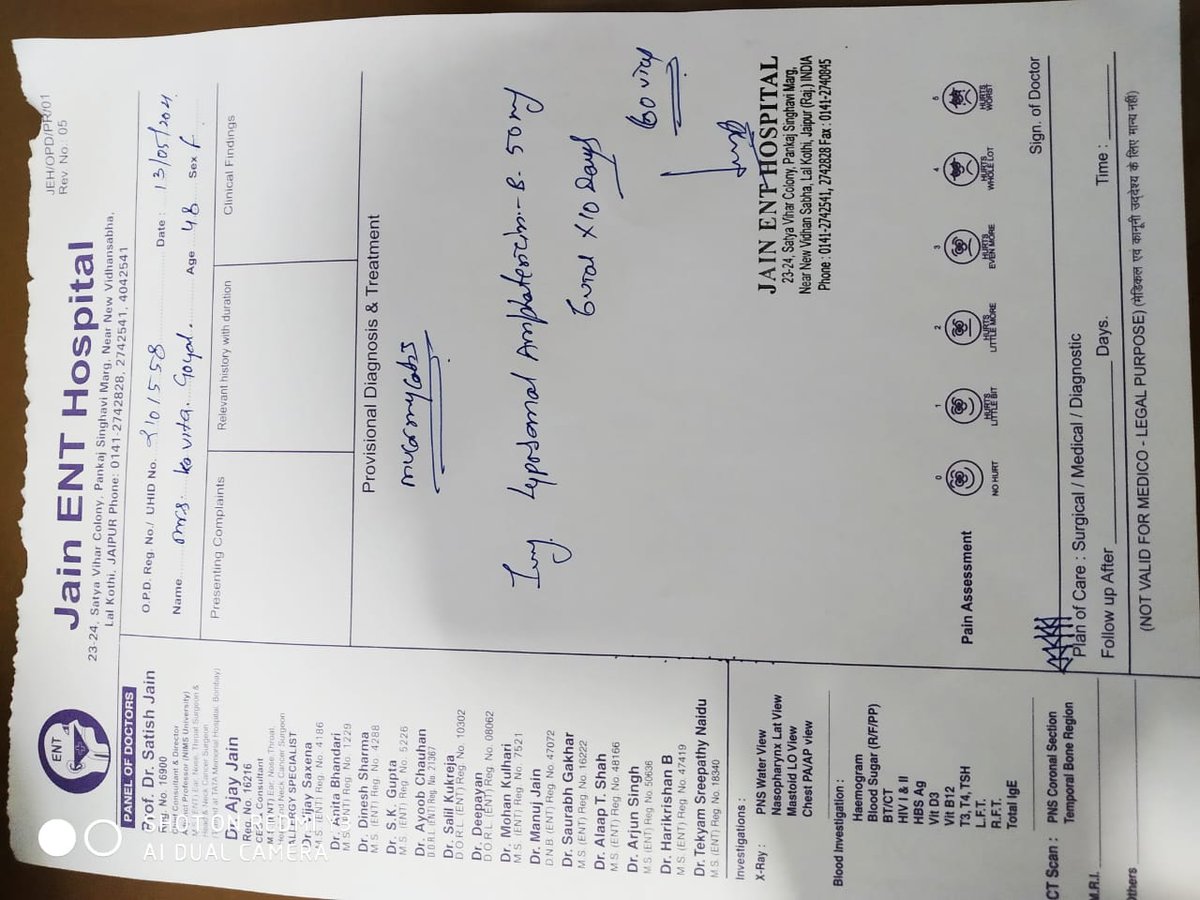 JEH/OPD/PR/01
Rev. No.: 05
ENT
Jain ENT Hospital
23-24, Satya Vihar Colony, Pankaj Singhavi Marg, Near New Vidhansabha,
Lal Kothi, JAIPUR Phone: 0141-2742828, 2742541, 4042541
PANEL OF DOCTORS
Prof. Dr. Satish Jain
Reg. No. 16900
Consultant & Director
Professor (NIMS University)
M.S (ENT) Ear, Nose, Throat Surgeon &
Head & Neck Cancer Surgeon
at TATA Memorial Hospital, Bombay)
Dr. Ajay Jain
Reg. No. 16216
Consultant
M.S (ENT) Ear, Nose, Throat,
Head and Neck Cancer Surgeon
ALLERGY SPECIALIST
Dr. Vijay Saxena
M.S. (ENT) Reg. No. 4186
Dr. Anita Bhandari
M.S. (ENT) Reg. No. 1229
Dr. Dinesh Sharma
M.S. (ENT) Reg. No. 4288
Dr. S.K. Gupta
M.S. (ENT) Reg. No. 5226
Dr. Ayoob Chauhan
D.O.R.L. (ENT) Reg. No. 21367
Dr. Salil Kukreja
D.O.R.L. (ENT) Reg. No. 10302
Dr. Deepayan
D.O.R.L. (ENT) Reg. No. 08062
Dr. Mohan Kulhari
M.S. (ENT) Reg. No. 7521
Dr. Manuj Jain
D.N.B (ENT) Reg. No. 47072
Dr. Saurabh Gakhar
M.S (ENT) Reg. No. 16222
Dr. Alaap T. Shah
M.S. (ENT) Reg. No. 48166
Dr. Arjun Singh
M.S. (ENT) Reg No. 50636
Dr. Harikrishan B
M.S. (ENT) Reg. No. 47419
Dr. Tekyam Sreepathy Naidu
M.S. (ENT) Reg. No. 18340
Investigations :
X-Ray : PNS Water View
Nasopharynx Lat View
Mastoid LO View
Chest PA/AP view
Blood Investigation :
Haemogram
Blood Sugar (R/F/PP)
BT/CT
HIV I & II
HBS Ag
Vit D3
Vit B12
T3, T4, TSH
L.F.T.
R.F.T.
Total IgE
CT Scan : PNS Coronal Section
Temporal Bone Region
M.R.I.
Others
O.P.D. Reg. No./ UHID No. 2101558 Date : 13/05/2021
Name Mrs. Kavita Goyal. Age 48 Sex F
Presenting Complaints Relevant history with duration Clinical Findings
Provisional Diagnosis & Treatment
Inj. Lyposomal Amphotericin-B. 50 mg
x 10 Days
60 vial
JAIN ENT HOSPITAL
23-24, Satya Vihar Colony, Pankaj Singhavi Marg,
Near New Vidhan Sabha, Lal Kothi, Jaipur (Raj.) INDIA
Phone : 0141-2742541, 2742828 Fax : 0141-2740845
Pain Assessment
0 1 2 3 4 5
NO HURT HURTS LITTLE BIT HURTS LITTLE MORE HURTS EVEN MORE HURTS WHOLE LOT HURTS WORST
Sign. of Doctor
Plan of Care : Surgical / Medical / Diagnostic
Follow up After Days. Time :
(NOT VALID FOR MEDICO - LEGAL PURPOSE) (मेडिकल एवं कानूनी उद्देश्य के लिए मान्य नहीं)
AI DUAL CAMERA